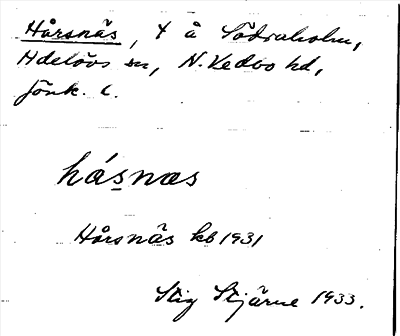 Hårsnäs, t å Södraholm,
Hdelövs sn, N. Vedbo hd,
Jönk. l.
hásnas
Hårsnäs kb 1931
Stig Stjärne 1933.